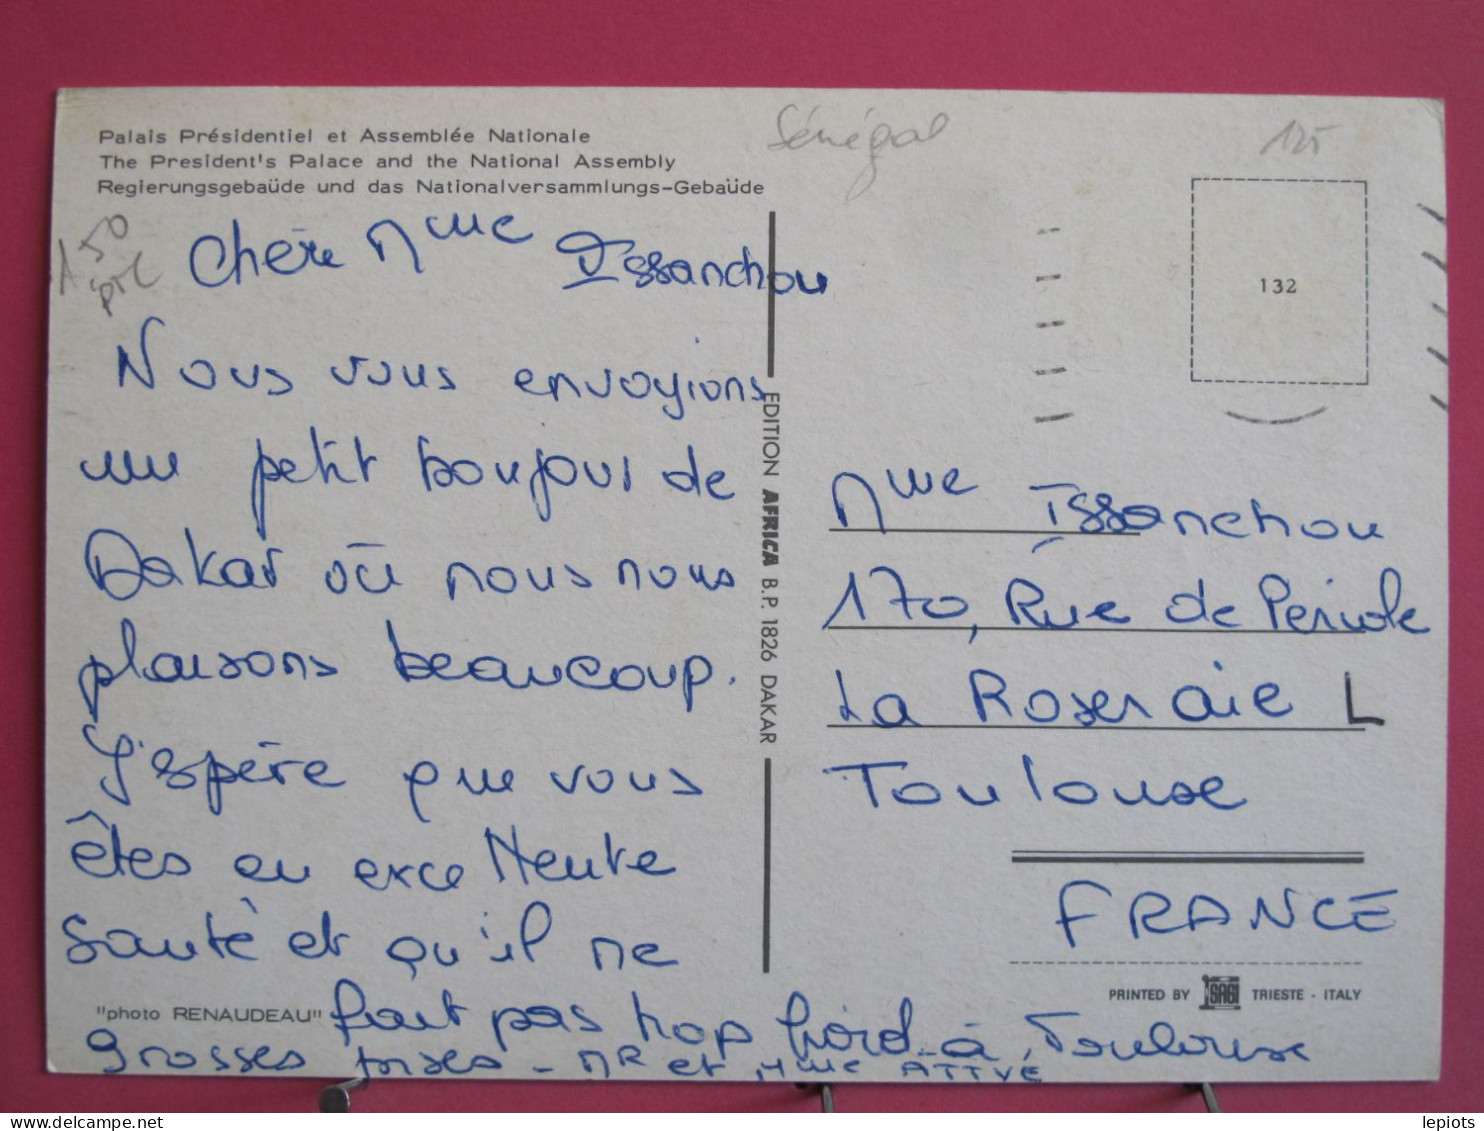 Palais Présidentiel et Assemblée Nationale
The President's Palace and the National Assembly
Regierungsgebaüde und das Nationalversammlungs-Gebaüde
Sénégal
125
150
132
Chère Mme Issanchou
Nous vous envoyions
un petit bonjour de
Dakar où nous nous
plaisons beaucoup.
J'espère que vous
êtes en excellente
santé et qu'il ne
fait pas trop froid à Toulouse
grosses bises - MR et Mme
"photo RENAUDEAU"
EDITION AFRICA B.P. 1826 DAKAR
Mme Issanchou
170, Rue de Périole
La Roseraie L
Toulouse
FRANCE
PRINTED BY SAGI TRIESTE - ITALY
delcampe.net
lepiots